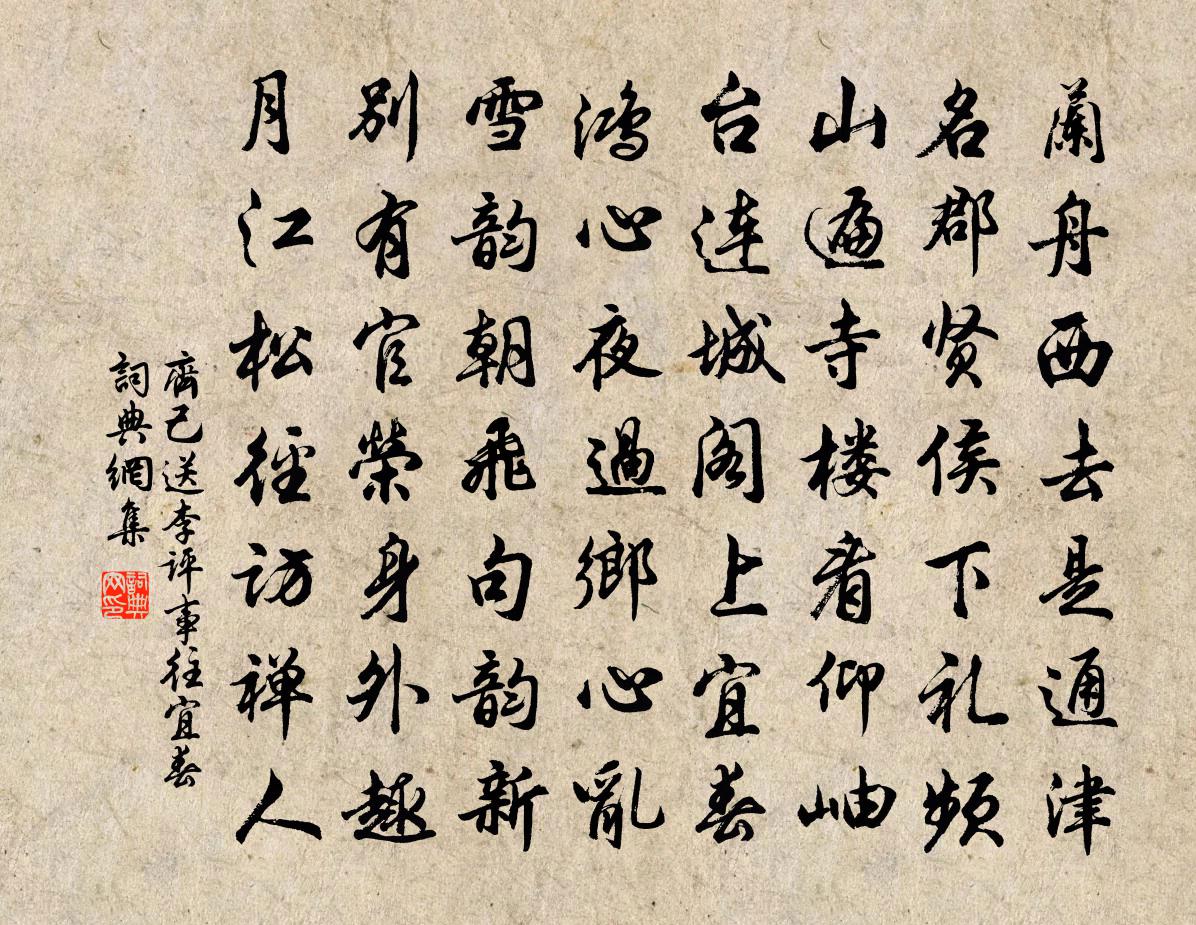 蘭舟西去是通津
名郡贤侯下礼频
山遍寺楼看仰岫
台连城阁上宜春
鸿心夜過鄉心亂
雪韵朝飛句韵新
别有官榮身外趣
月江松徑访禅人
齊己送李評事往宜春
詞典網集
詞典
网印